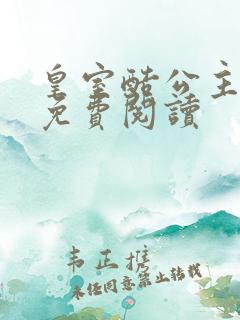 皇室酷公主
免費閱讀
韦正推
未经同意禁止转载